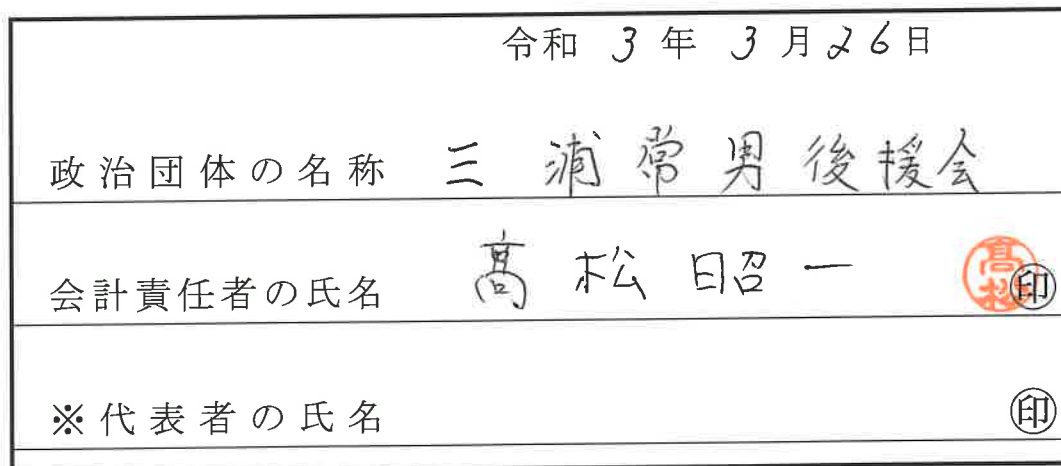 令和 3 年 3 月 26 日
政治団体の名称 三浦常男後援会
会計責任者の氏名 髙松昭一 髙松 ㊞
※代表者の氏名 ㊞